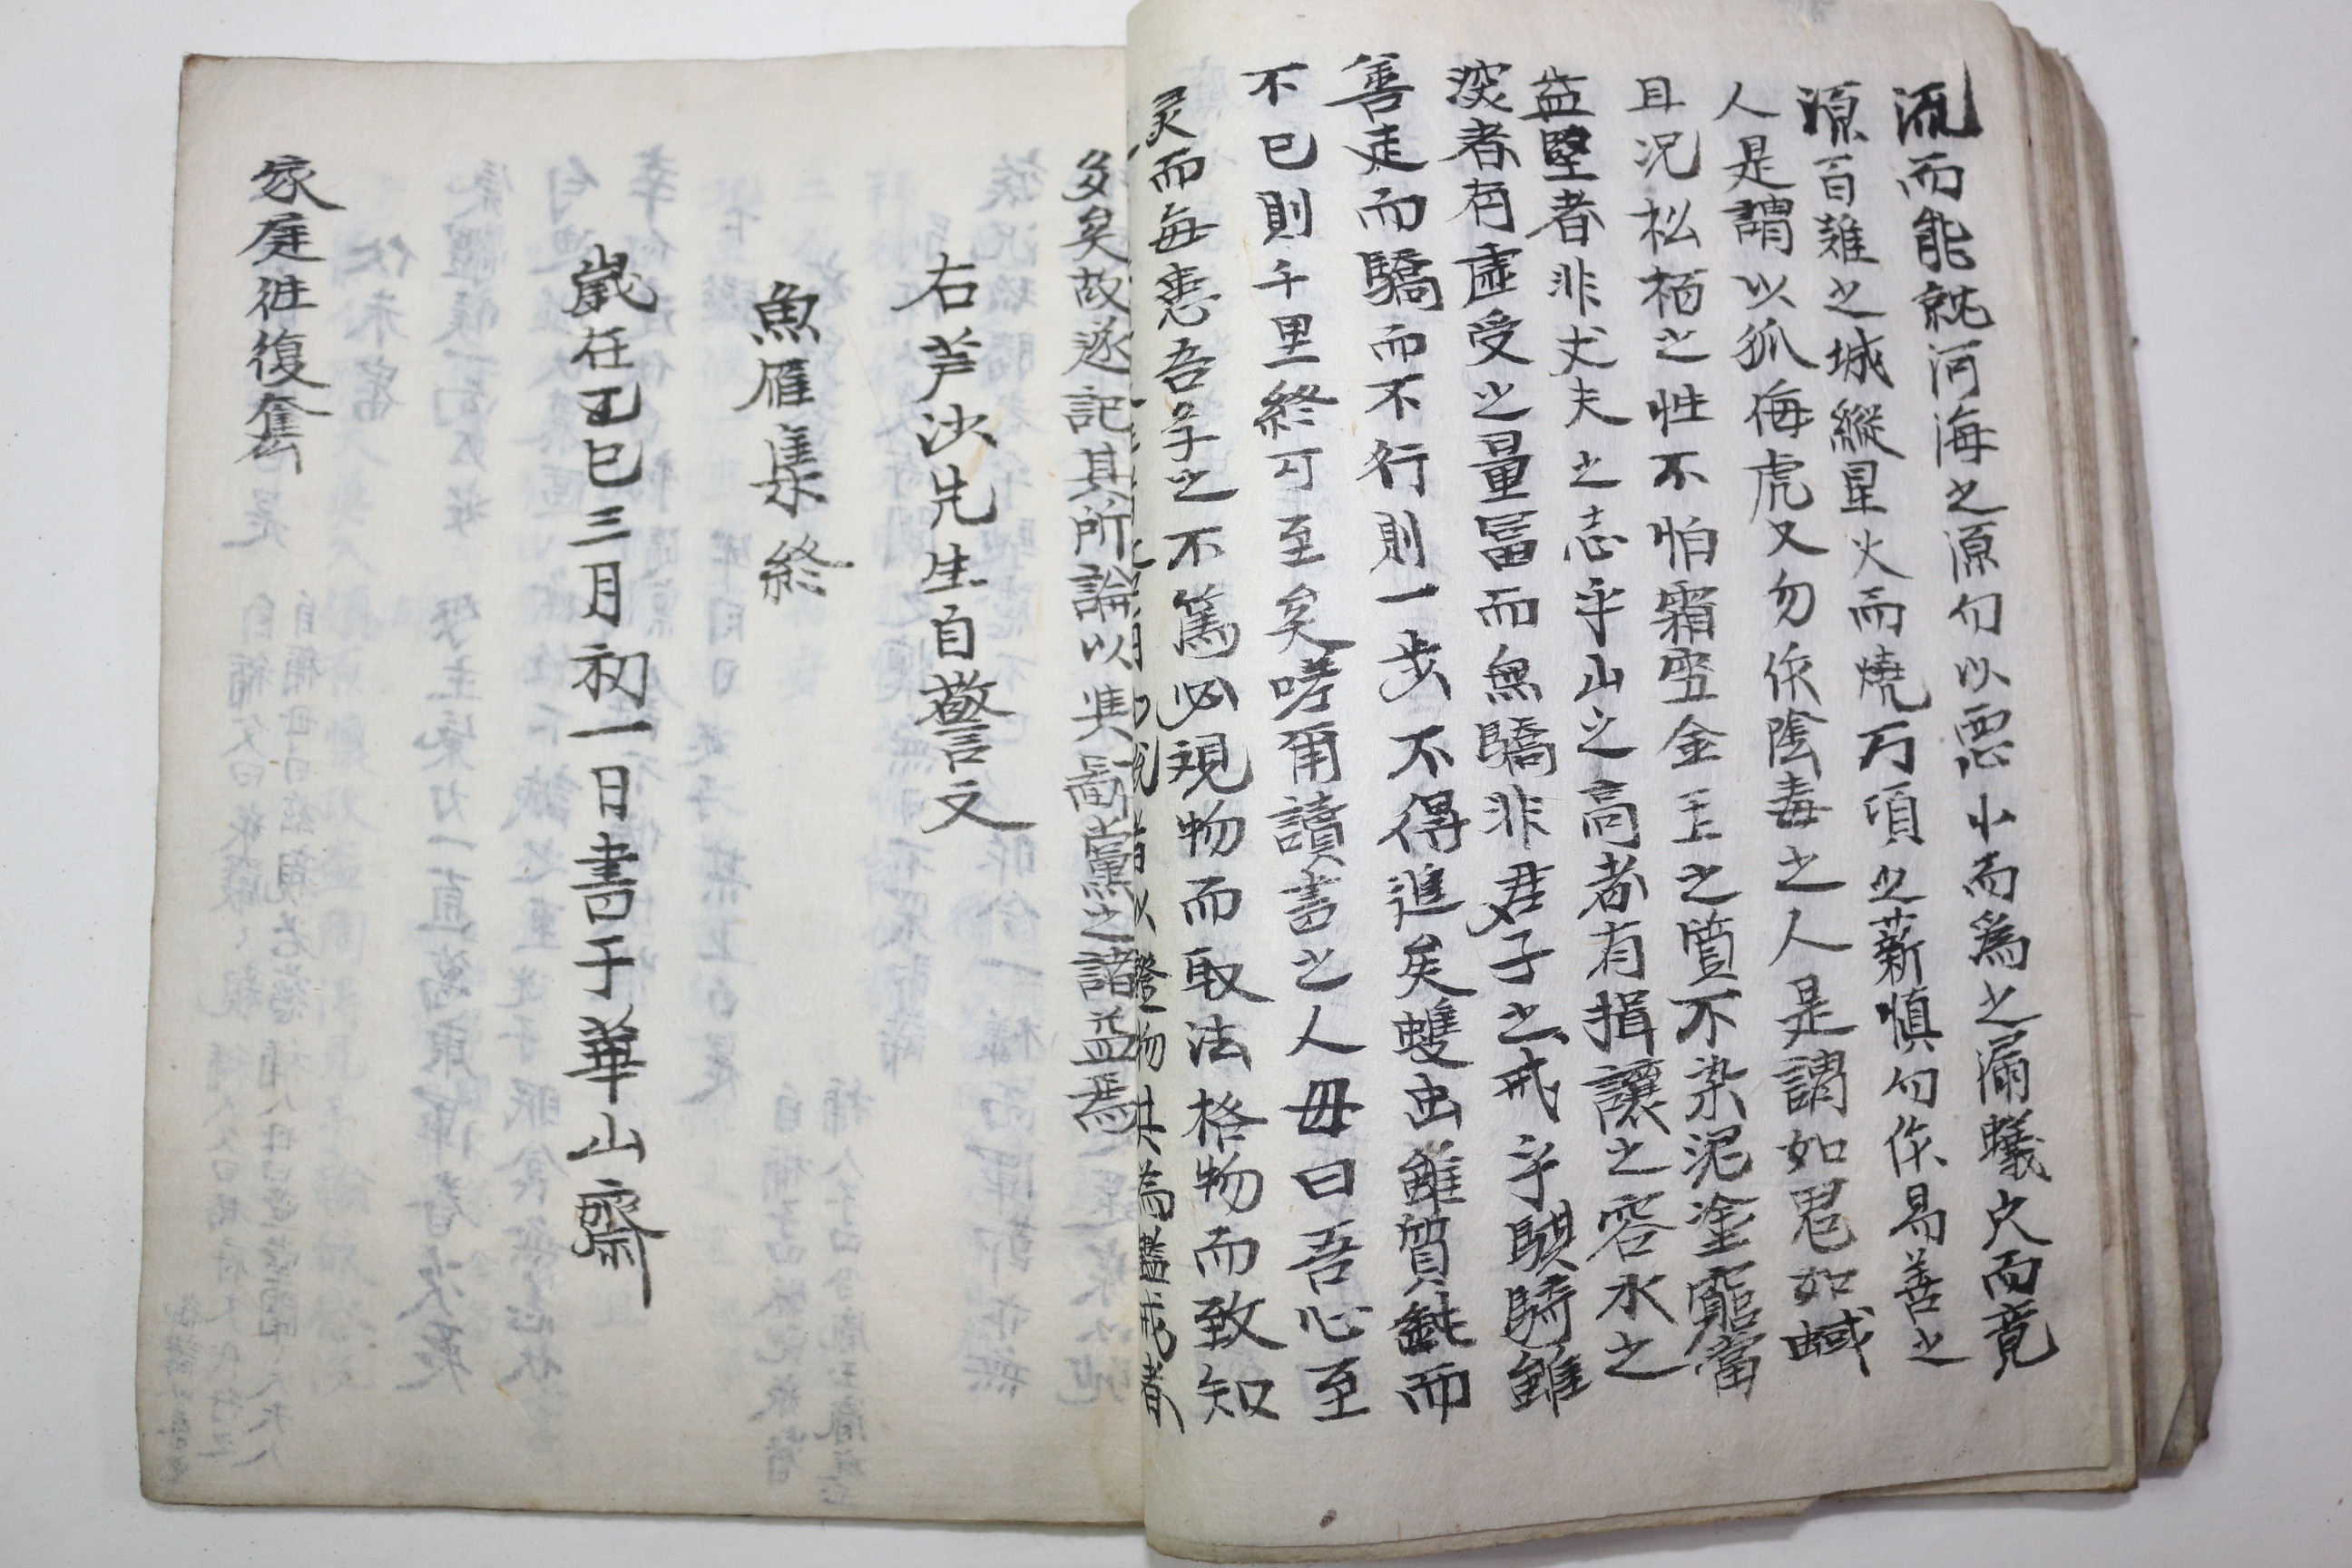 流而能就河海之源勿以惡小而爲之漏蟻穴而竟
源百雉之城縱星火而燒万項之薪愼勿作易善之
人是謂以狐侮虎又勿依陰毒之人是謂如鬼如蜮
且况松栢之性不怕霜雪金玉之質不染泥塗窮當
益堅者非丈夫之志乎山之高者有揖讓之容水之
深者有虛受之量富而無驕非君子之戒乎騏騎雖
善走而驕而不行則一步不得進矣雙虫雖質賤而
不已則千里終可至矣嗟爾讀書之人毋曰吾心至
灵而每患吾学之不篤必觀物而取法格物而致知
多矣故遂記其所論以雋鄕黨之諸益焉
右芦沙先生自警文
魚雁集終
歲在乙巳三月初一日書于華山齋
家庭往復套